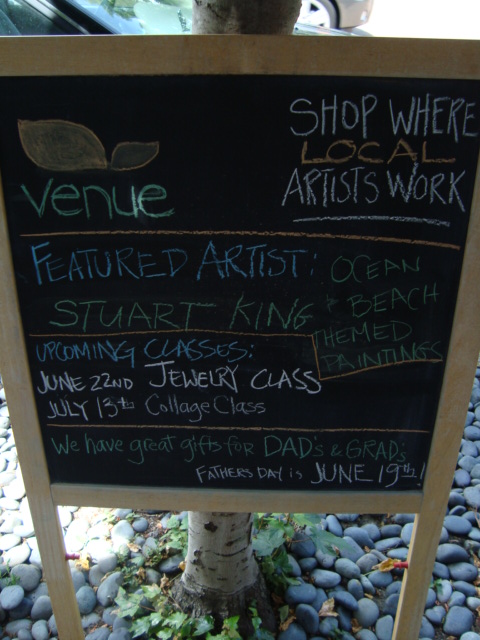 SHOP WHERE
LOCAL
ARTISTS WORK
venue
FEATURED ARTIST:
STUART KING
OCEAN
& BEACH
THEMED
PAINTINGS
UPCOMING CLASSES:
JUNE 22ND JEWELRY CLASS
JULY 13th Collage Class
We have great gifts for DAD's & GRAD's
FATHERS DAY is JUNE 19th!